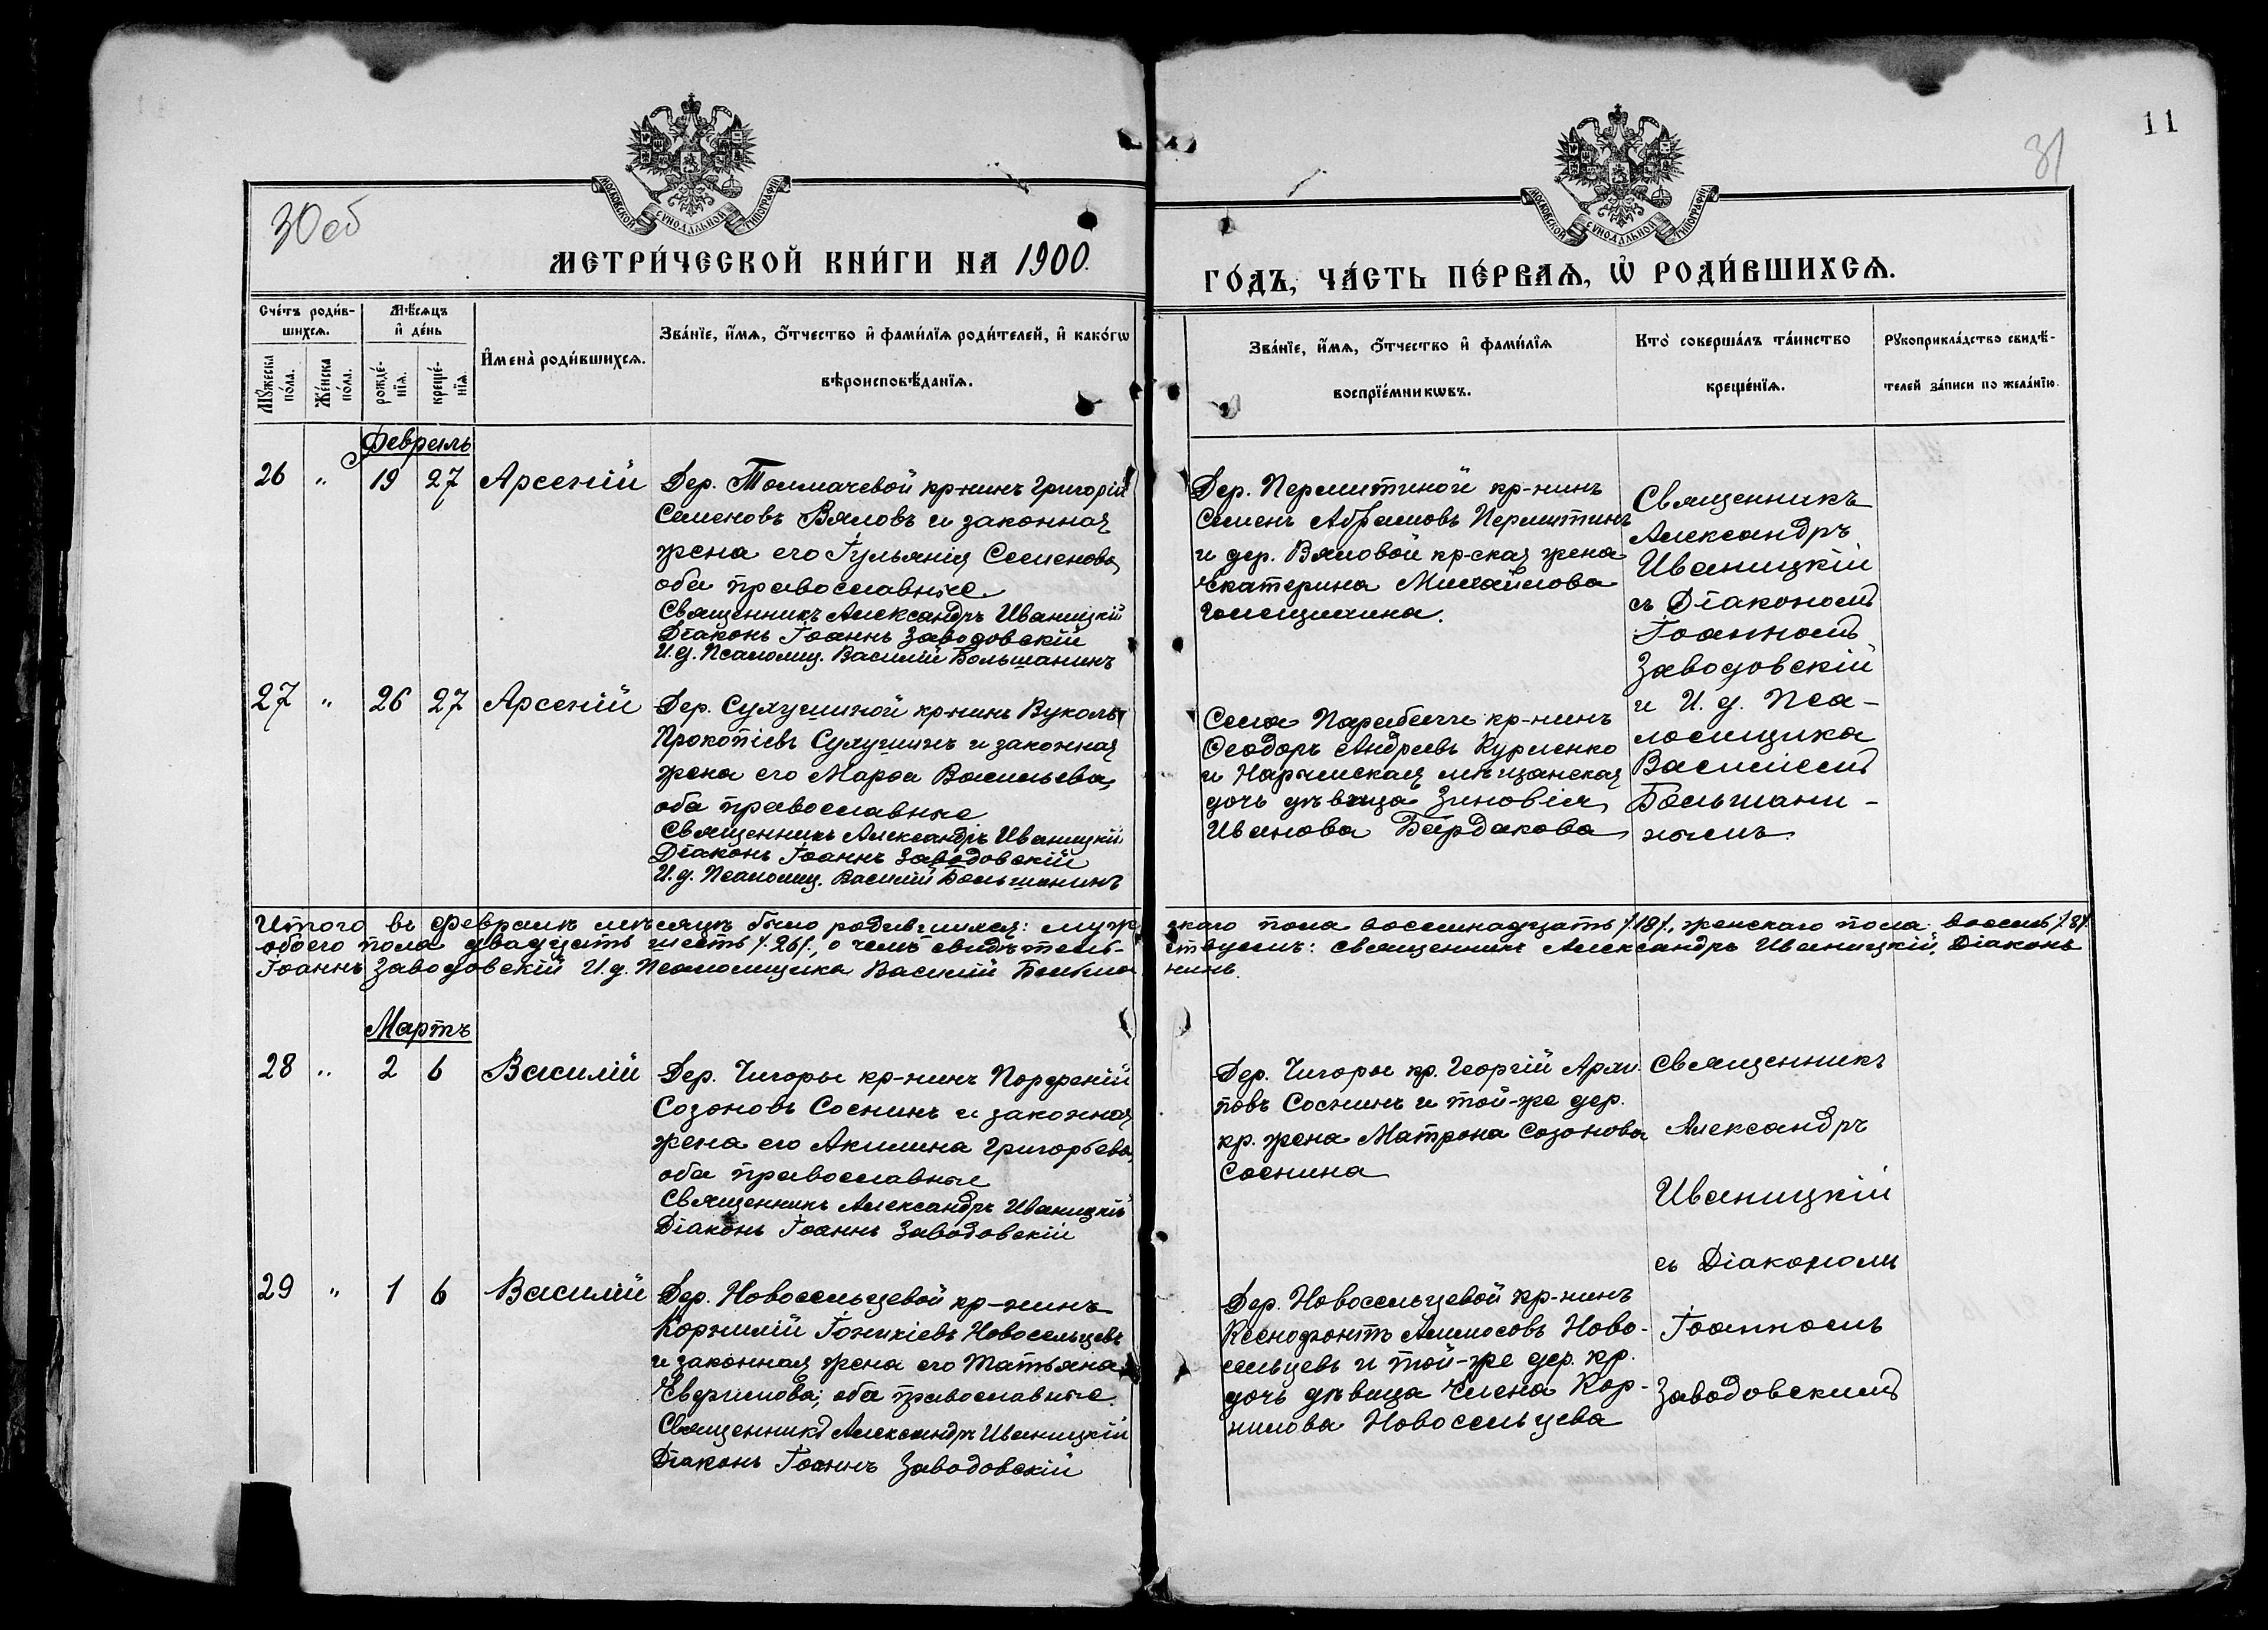 11
31
30об
МОСКОВСКОЙ СѴНОДАЛЬНОЙ ТИПОГРАФІИ
МОСКОВСКОЙ СѴНОДАЛЬНОЙ ТИПОГРАФІИ
МЕТРИ́ЧЕСКОЙ КНИ́ГИ НА 1900.
ГО́ДЪ, ЧА́СТЬ ПЕ́РВАѦ, Ѡ҆ РОДИ́ВШИХСѦ.
Сче́тъ роди́в-
шихсѧ.
Мѣ́сѧцъ
и҆ де́нь
Мꙋ́жеска
по́ла.
Же́нска
по́ла.
рожде́-
нїѧ.
креще́-
нїѧ.
И҆мена̀ роди́вшихсѧ.
Зва́нїе, и҆́мѧ, ѻ҆́тчество и҆ фами́лїѧ роди́телей, и҆ како́гѡ
вѣроисповѣ́данїѧ.
Зва́нїе, и҆́мѧ, ѻ҆́тчество и҆ фами́лїѧ
воспрїе́мникѡвъ.
Кто̀ соверша́лъ та́инство
креще́нїѧ.
Рꙋкоприкла́дство свидѣ́-
телей за́писи по жела́нїю.
Февраль
26 " 19 27 Арсеній
Дер. Толмачевой кр-нинъ Григорій
Семеновъ Вяловъ и законная
жена его Іульянія Семенова,
оба православные
Священникъ Александръ Иваницкій
Діаконъ Іоаннъ Заводовскій
И. д. Псаломщ. Василій Большанинъ
Дер. Пермитиной кр-нинъ
Семенъ Абрамовъ Пермитинъ
и дер. Вяловой кр-ская жена
Екатерина Михайлова
Голещихина.
Священникъ
Александръ
Иваницкій
съ Діакономъ
Іоанномъ
Заводовскій
и И. д. Пса-
ломщика
Василіемъ
Большани-
нымъ.
27 " 26 27 Арсеній
Дер. Сухушиной кр-нинъ Вуколъ
Прокопіевъ Сухушинъ и законная
жена его Марѳа Васильева,
оба православные
Священникъ Александръ Иваницкій
Діаконъ Іоаннъ Заводовскій
И. д. Псаломщ. Василій Большанинъ
Села Парабели кр-нинъ
Ѳеодоръ Андреевъ Курленко
и Нарымская мѣщанская
дочь дѣвица Зиновія
Иванова Бардакова
Итого въ Февралѣ мѣсяцѣ было родившихся: муже скаго пола восемнадцать /18/, женскаго пола восемь /8/,
обоего пола двадцать шесть /26/, о чемъ свидѣтель- ствуемъ: Священникъ Александръ Иваницкій, Діаконъ
Іоаннъ Заводовскій И. д. Псаломщика Василій Большанинъ.
Мартъ
28 " 2 6 Василій
Дер. Чигоры кр-нинъ Порфеній
Созоновъ Соснинъ и законная
жена его Акилина Григорьева,
оба православные
Священникъ Александръ Иваницкій
Діаконъ Іоаннъ Заводовскій
Дер. Чигоры кр. Георгій Архи-
повъ Соснинъ и той-же дер.
кр. жена Матрона Созонова
Соснина
Священникъ
Александръ
Иваницкій
съ Діакономъ
Іоанномъ
Заводовскимъ
29 " 1 6 Василій
Дер. Новосельцевой кр-нинъ
Корнилій Іоникіевъ Новосельцевъ
и законная жена его Татьяна
Евфимова; оба православные.
Священникъ Александръ Иваницкій
Діаконъ Іоаннъ Заводовскій
Дер. Новосельцевой кр-нинъ
Ксенофонтъ Аммосовъ Ново-
сельцевъ и той-же дер. кр.
дочь дѣвица Елена Кор-
нилова Новосельцева